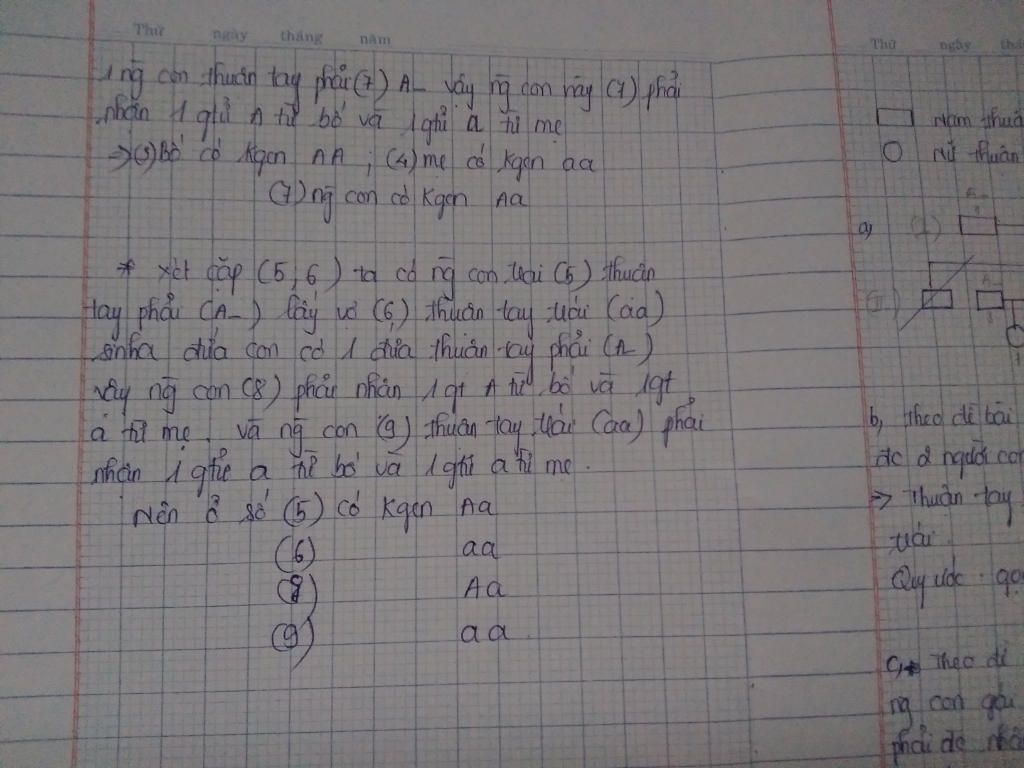 Thứ ngày tháng năm
1 ng̃ con thuận tay phải (7) A_ vậy ng̃ con này (7) phải
nhận 1 gtử A từ bố và 1 gtử a từ mẹ
⇒ (3) Bố có Kgen AA ; (4) mẹ có Kgen aa
(7) ng̃ con có Kgen Aa
* Xét cặp (5, 6) ta có ng̃ con trai (5) thuận
tay phải (A_) lấy vợ (6) thuận tay trái (aa)
sinh 2 đứa con có 1 đứa thuận tay phải (A_)
vậy ng̃ con (8) phải nhận 1 gt A từ bố và 1 gt
a từ mẹ. và ng̃ con (9) thuận tay trái (aa) phải
nhận 1 gtử a từ bố và 1 gtử a từ mẹ.
Nên ở số (5) có Kgen Aa
(6) aa
(8) Aa
(9) aa
Thứ ngày
Nam thuận
Nữ thuận
a)
(I)
(II)
b, Theo đề bài
đc 2 người con
⇒ Thuận tay
trái.
Quy ước:
c, * Theo đề
ng̃ con gái
phải đc nhận